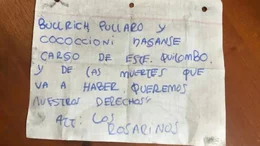 BULLRICH PULLARO Y
COCOCCIONI HAGANSE
CARGO DE ESTE QUILOMBO
Y DE LAS MUERTES QUE
VA A HABER. QUEREMOS
NUESTROS DERECHOS"
ATT: LOS
ROSARINOS